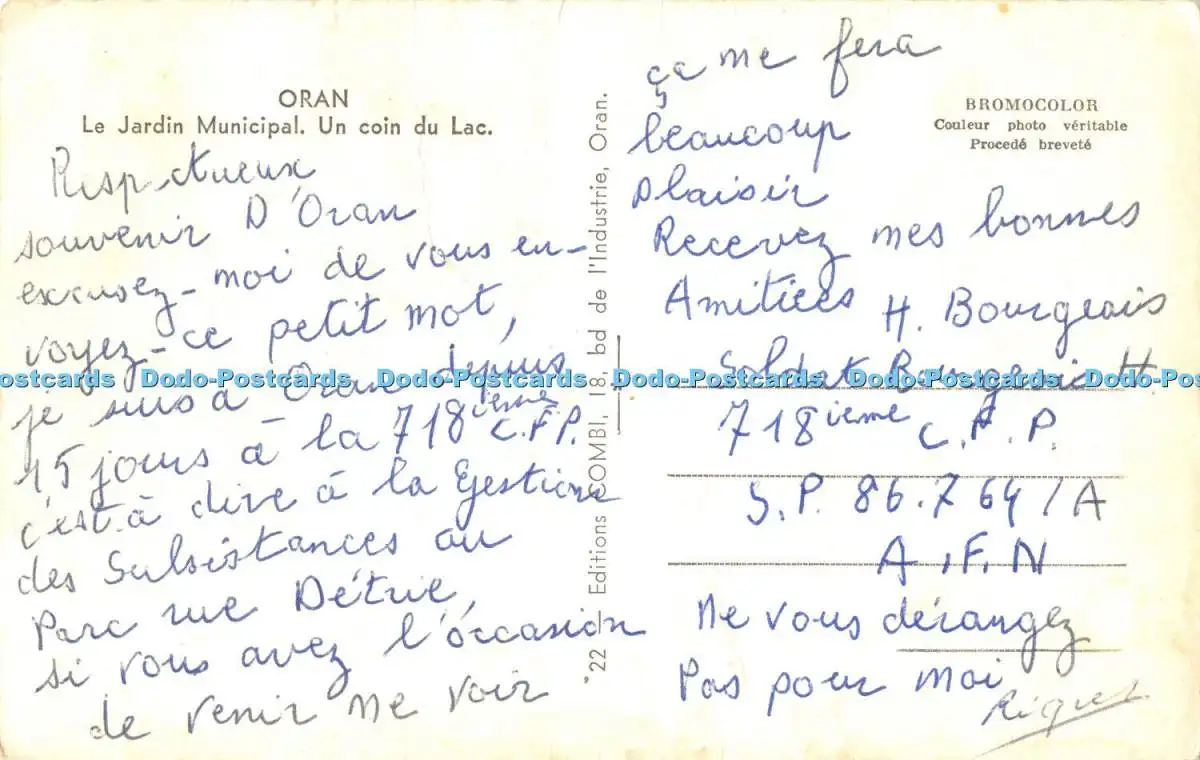 ORAN
Le Jardin Municipal. Un coin du Lac.
Respectueux
souvenir D'Oran
excusez-moi de vous en-
voyez-ce petit mot,
je suis à Oran depuis
15 jours à la 718ième C.F.P.
c'est à dire à la Gestion
des Subsistances au
Parc rue Détrie,
si vous avez l'óccasion
de venir me voir
22 - Editions COMBI, 18, bd de l'Industrie, Oran.
BROMOCOLOR
Couleur photo véritable
Procedé breveté
ça me fera
beaucoup
plaisir
Recevez mes bonnes
Amitiées H. Bourgeois
Soldat Bourgeois H.
718ième C.F.P.
S.P. 86.764/A
A.F.N
Ne vous dérangez
Pas pour moi
Riquet
Dodo-Postcards Dodo-Postcards Dodo-Postcards Dodo-Postcards Dodo-Postcards